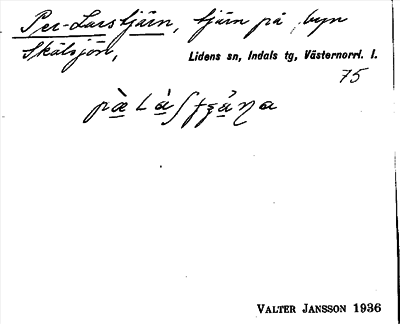 Per-Larstjärn, tjärn på byn
Skälsjön,
Lidens sn, Indals tg, Västernorrl. l.
75
VALTER JANSSON 1936